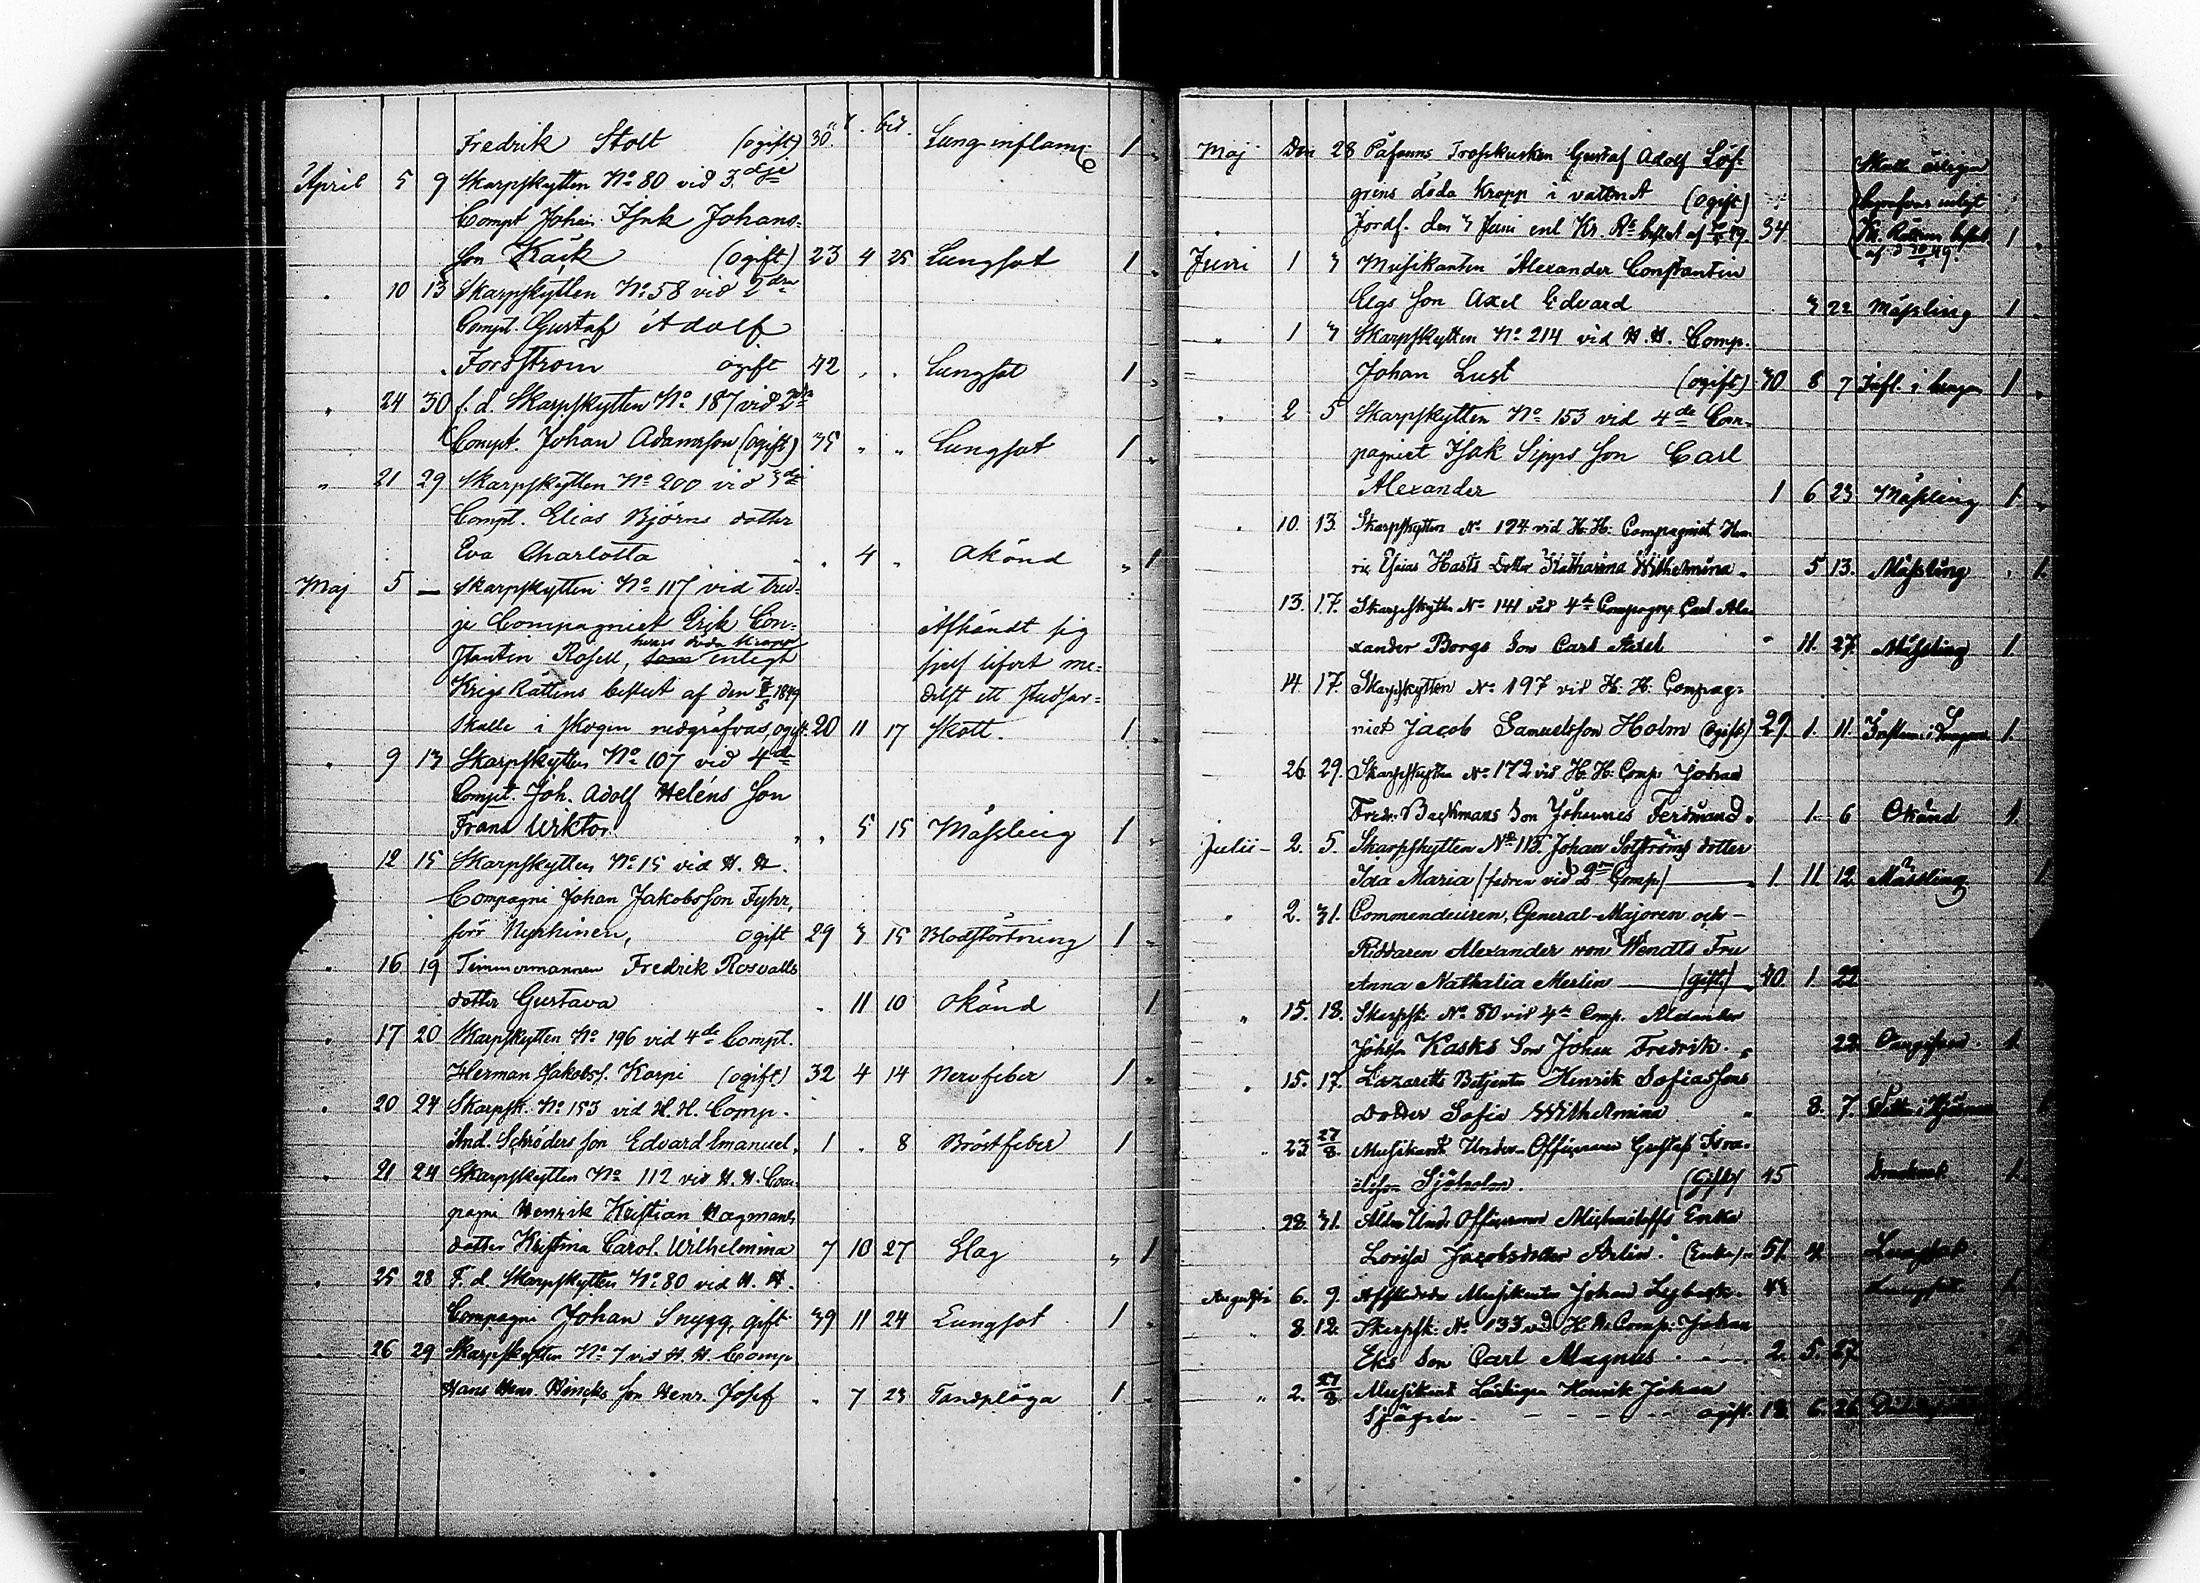 Fredrik Stolt (ogift) 30. Lung inflam 1
April 5 9 Skarpskytten No 80 vid 3dje
Compt Johan Johans-
son Kask (ogift) 23 4 25 Lungsot 1
10 13 Skarpskytten No 58 vid 2dra
Compt. Gustaf Adolf
Forsström ogift 42 Lungsot 1
24 30 f. d. Skarpskytten No 187 vid 2dra
Compt. Johan Adamsson (ogift) 35 Lungsot 1
21 29 Skarpskytten No 200 vid 3de
Compt. Elias Björns dotter
Eva Charlotta 4 okänd 1
Maj 5 — Skarpskytten No 117 vid tred-
je Compagniet Erik Con- Afhändt sig
stantin Rosell, hvars döda kropp enligt sjelf lifvet me-
Krigs Rättens beslut af den 7/5 1849 delst ett studsar-
skulle i skogen nedgräfvas, ogift. 20 11 17 skott. 1
9 13 Skarpskytten No 107 vid 4de
Compt. Joh. Adolf Heléns son
Frans Wiktor 5 15 Mässling 1
12 15 Skarpskytten No 15 vid H. H.
Compagni Johan Jakobsson Fyhr,
förr Nyrhinen, ogift 29 3 15 Blodstörtning 1
16 19 Timmermannen Fredrik Rosvalls
dotter Gustava 11 10 okänd 1
17 20 Skarpskytten No 196 vid 4de Compt.
Herman Jakobss. Karpi (ogift) 32 4 14 Nervfeber 1
20 24 Skarpsk. No 153 vid H. H. Comp.
And. Schröders son Edvard Emanuel, 1 8 Bröstfeber 1
21 24 Skarpskytten No 112 vid H. H. Com-
pagni Henrik Kristian Hagmans
dotter Kristina Carol. Wilhelmina 7 10 27 Slag 1
25 28 F. d. Skarpskytten No 80 vid H. H.
Compagni Johan Snygg, gift 39 11 24 Lungsot 1
26 29 Skarpskytten No 7 vid H. H. Comp
Hans Henr. son Henr. Josef 7 23 Tandplåga 1
Maj Den 28 Påfanns Trosskusken Gustaf Adolf Löf- Skulle
grens döda kropp i vattnet (ogift) begrafvas enligt
Jordf. den 7 Juni enl Kr. Rs beslut af 34 Kr. Rättens beslut 1
Juni 1 3 Musikanten Alexander Constantin
Elgs son Axel Edvard 3 22 Mässling 1
1 3 Skarpskytten No 214 vid H. H. Comp.
Johan Lust (ogift) 30 8 7 Infl. i lungan 1
2 5 Skarpskytten No 153 vid 4de Com-
pagniet Isak Sipps son Carl
Alexander 1 6 23 Mässling 1
10. 13. Skarpskytten No 194 vid H. H. Compagniet Hen-
ric Esaias Hasts Dotter Katharina Wilhelmina 5 13. Mässling 1.
13. 17. Skarpskytten No 141 vid 4de Compagni Carl Ale-
xander Borgs Son Carl Axel 11. 27. Mässling 1.
14. 17. Skarpskytten No 197 vid H. H. Compag-
niet Jacob Samuelsson Holm (ogift) 29 1. 11. Inflam: i Lungorna 1.
26. 29. Skarpskytten No 172 vid H. H. Comp. Johan
Fredr. Backmans Son Johannes Ferdinand 1. 6 Okänd 1.
Julii 2. 5. Skarpskytten No 115. Johan Sotströms dotter
Ida Maria (fadren vid 2dra Comp) 1. 11. 12. Mässling 1.
2. 31. Commendeuren, General-Majoren och
Riddaren Alexander von Wendts Fru
Anna Nathalia Merlin (gift) 40. 1. 22
15. 18. Skarpsk. No 80 vid 4de Comp. Alexander
Johss Kasks Son Johan Fredrik. 22. 1.
15. 17. Lazaretts Betjenten Henrik Sofiassons
Dotter Sofia Wilhelmina 8. 7. 1
23. 27/8. Musikant Under-Officeraren Gustaf Isra-
elsson Sjöholm. (Gift) 45 1.
28. 31. Äldre Und: Officeraren Enka
Lovisa Jacobsdotter Arlin. (Enka) 51. Lungsot
Augusti 6. 9. Afskedade Musikanten Johan 43 Lungsot 1.
8. 12. Skarpsk. No 133 vid H. H. Comp. Johan
Eks Son Carl Magnus 2. 5. 27.
2. 27/8. Musikant Lärlingen Henrik Johan
Sjögren ogift 18. 6. 26